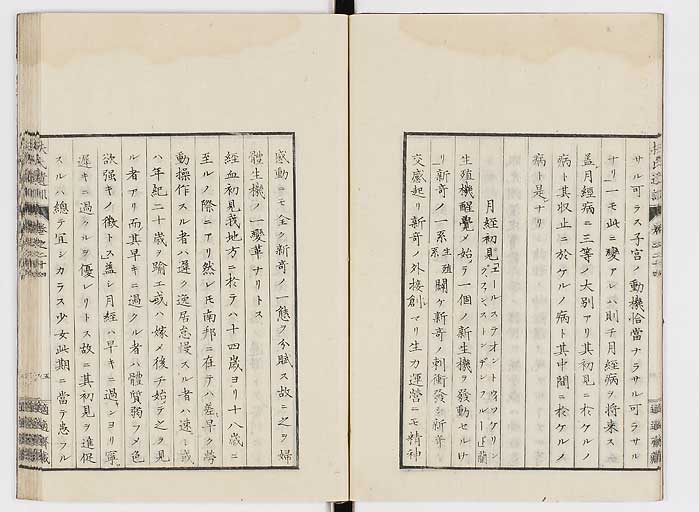 サル可ラス子宮ノ動機恰當ナラサル可ラサル
ナリ一モ此ニ變アレハ則チ月經病ヲ將來ス
蓋月經病ニ三等ノ大別アリ其初見ニ於ケルノ
病ト其收止ニ於ケルノ病ト其中間ニ於ケルノ
病ト是ナリ
月經初見
生殖機醒覺メ始テ一個ノ新生機ヲ發動セルナ
リ新奇ノ一系生殖系闢ケ新奇ノ刺衝發シ新奇ノ
交感起リ新奇ノ外接創マリ生力運營ニモ精神
感動ニモ全ク新奇ノ一態ヲ分賦ス故ニ之ヲ婦
體生機ノ一變革ナリトス
經血初見我地方ニ於テハ十四歳ヨリ十八歳ニ
至ルノ際ニアリ然レ𪜈南邦ニ在テハ差早ク勞
動操作スル者ハ遲ク逸居怠慢スル者ハ速ニ或
ハ年紀二十歳ヲ踰エ或ハ嫁メ後チ始テ之ヲ見
ル者アリ而其早キニ過クル者ハ體質弱フメ色
欲強キノ徴トス蓋シ月經ハ早キニ過シヨリ寧
遲キニ過クルヲ優レリトス故ニ其初見ヲ進促
スルハ總テ宜シカラス少女此期ニ當テ患フル
扶氏遺訓 卷之二十四
適適齋藏